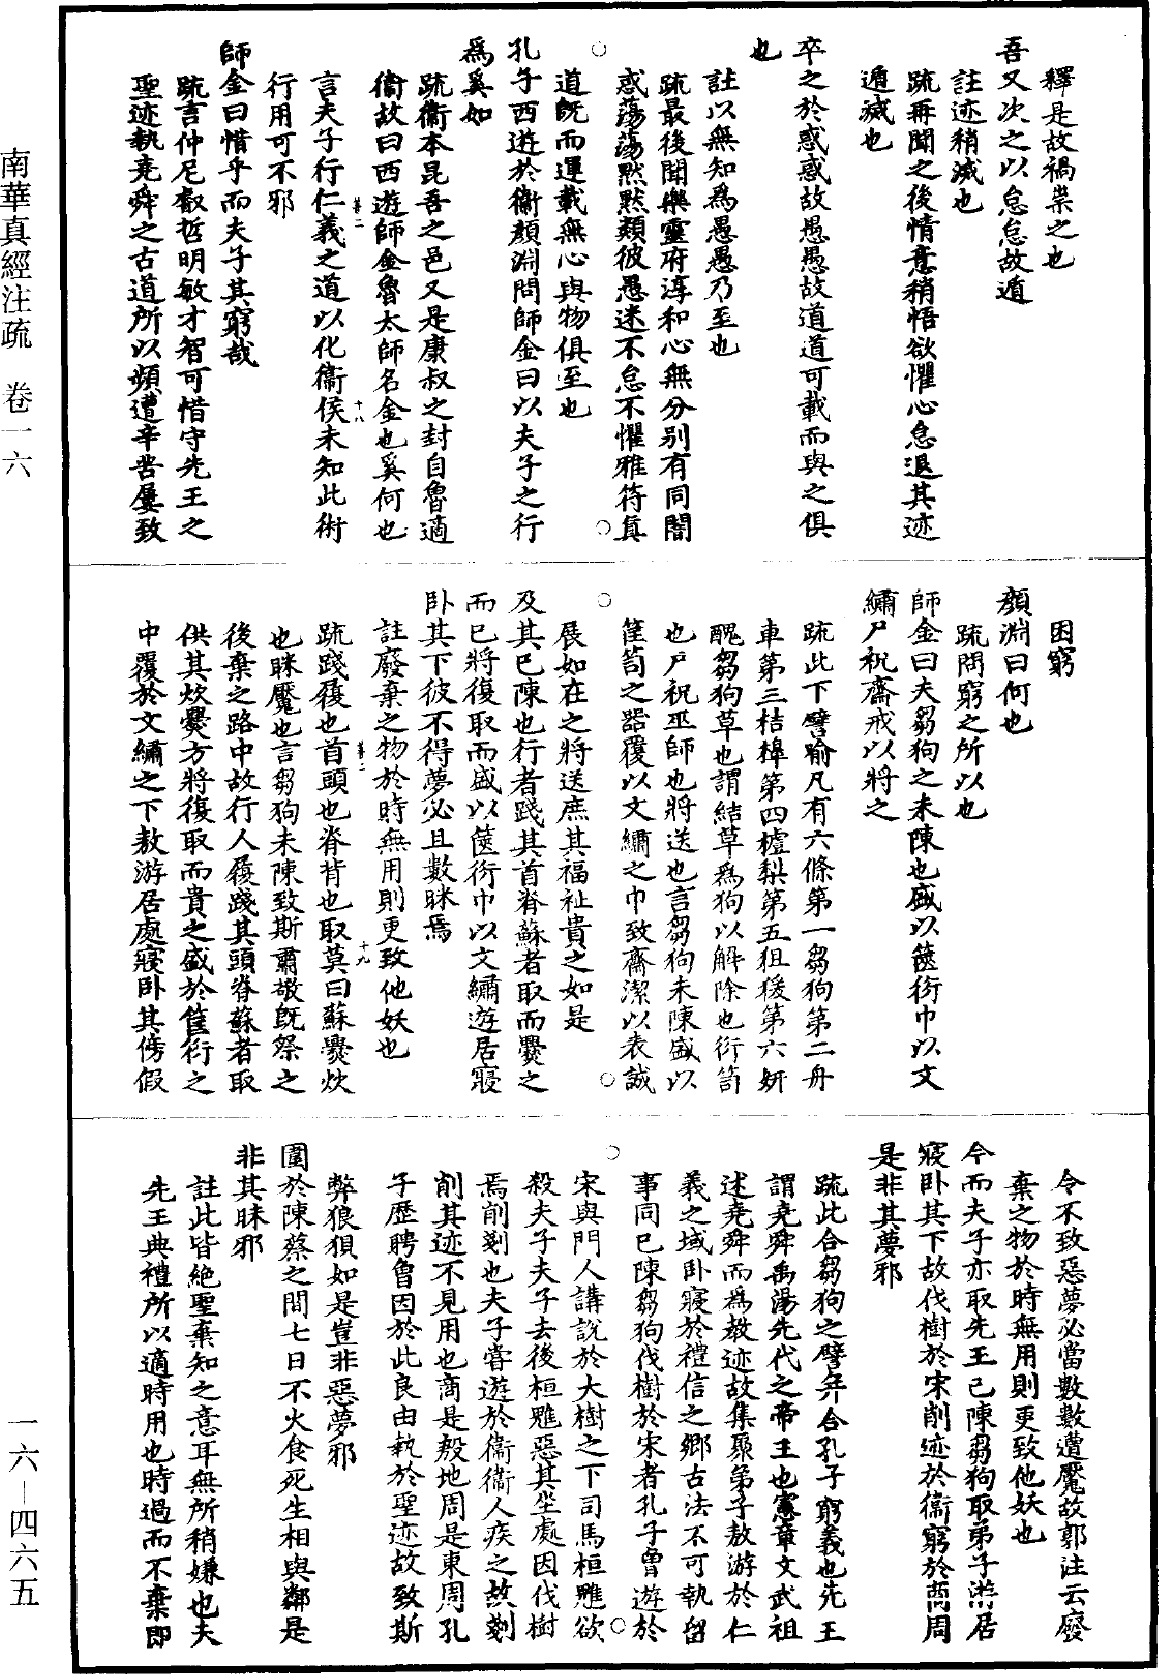 釋是故禍祟之也
吾又次之以怠怠故遁
註迹稍滅也
疏再聞之後情意稍悟欲懼心怠退其迹
遁滅也
卒之於惑惑故愚愚故道道可載而與之俱
也
註以無知爲愚愚乃至也
疏最後聞樂靈府淳和心無分别有同闇
惑蕩蕩默默類彼愚迷不怠不懼雅符真
道既而運載無心與物俱至也
孔子西遊於衞顏淵問師金曰以夫子之行
爲奚如
疏衞本昆吾之邑又是康叔之封自魯適
衞故曰西遊師金魯太師名金也奚何也
言夫子行仁義之道以化衞侯未知此術
行用可不邪
師金曰惜乎而夫子其窮哉
疏言仲尼叡哲明敏才智可惜守先王之
聖迹執堯舜之古道所以頻遭辛苦屢致
困窮
顏淵曰何也
疏問窮之所以也
師金曰夫芻狗之未陳也盛以篋衍巾以文
繡尸祝齋戒以將之
疏此下譬喻凡有六條第一芻狗第二舟
車第三桔槹第四樝梨第五狙猨第六妍
醜芻狗草也謂結草爲狗以解除也衍笥
也尸祝巫師也將送也言芻狗未陳盛以
筐笥之器覆以文繡之巾致齋潔以表誠
展如在之將送庶其福祉貴之如是
及其已陳也行者踐其首脊蘇者取而爨之
而已將復取而盛以篋衍巾以文繡遊居寢
卧其下彼不得夢必且數眯焉
註廢棄之物於時無用則更致他妖也
疏踐履也首頭也脊背也取草曰蘇爨炊
也眯魘也言芻狗未陳致斯肅敬既祭之
後棄之路中故行人履踐其頭脊蘇者取
供其炊爨方將復取而貴之盛於筐衍之
中覆於文繡之下敖游居處寢卧其傍假
令不致惡夢必當數數遭魘故郭注云廢
棄之物於時無用則更致他妖也
今而夫子亦取先王已陳芻狗取弟子遊居
寢卧其下故伐樹於宋削迹於衞窮於商周
是非其夢邪
疏此合芻狗之譬并合孔子窮義也先王
謂堯舜禹湯先代之帝王也憲章文武祖
述堯舜而爲教迹故集聚弟子敖游於仁
義之域卧寢於禮信之鄉古法不可執留
事同已陳芻狗伐樹於宋者孔子曾遊於
宋與門人講說於大樹之下司馬桓魋欲
殺夫子夫子去後桓魋惡其坐處因伐樹
焉削剗也夫子嘗遊於衞衞人疾之故剗
削其迹不見用也商是殷地周是東周孔
子歷聘魯因於此良由執於聖迹故致斯
弊狼狽如是豈非惡夢邪
圍於陳蔡之間七日不火食死生相與鄰是
非其眯邪
註此皆絶聖棄知之意耳無所稍嫌也夫
先王典禮所以適時用也時過而不棄即
南華真經注疏 卷一六
一六—四六五